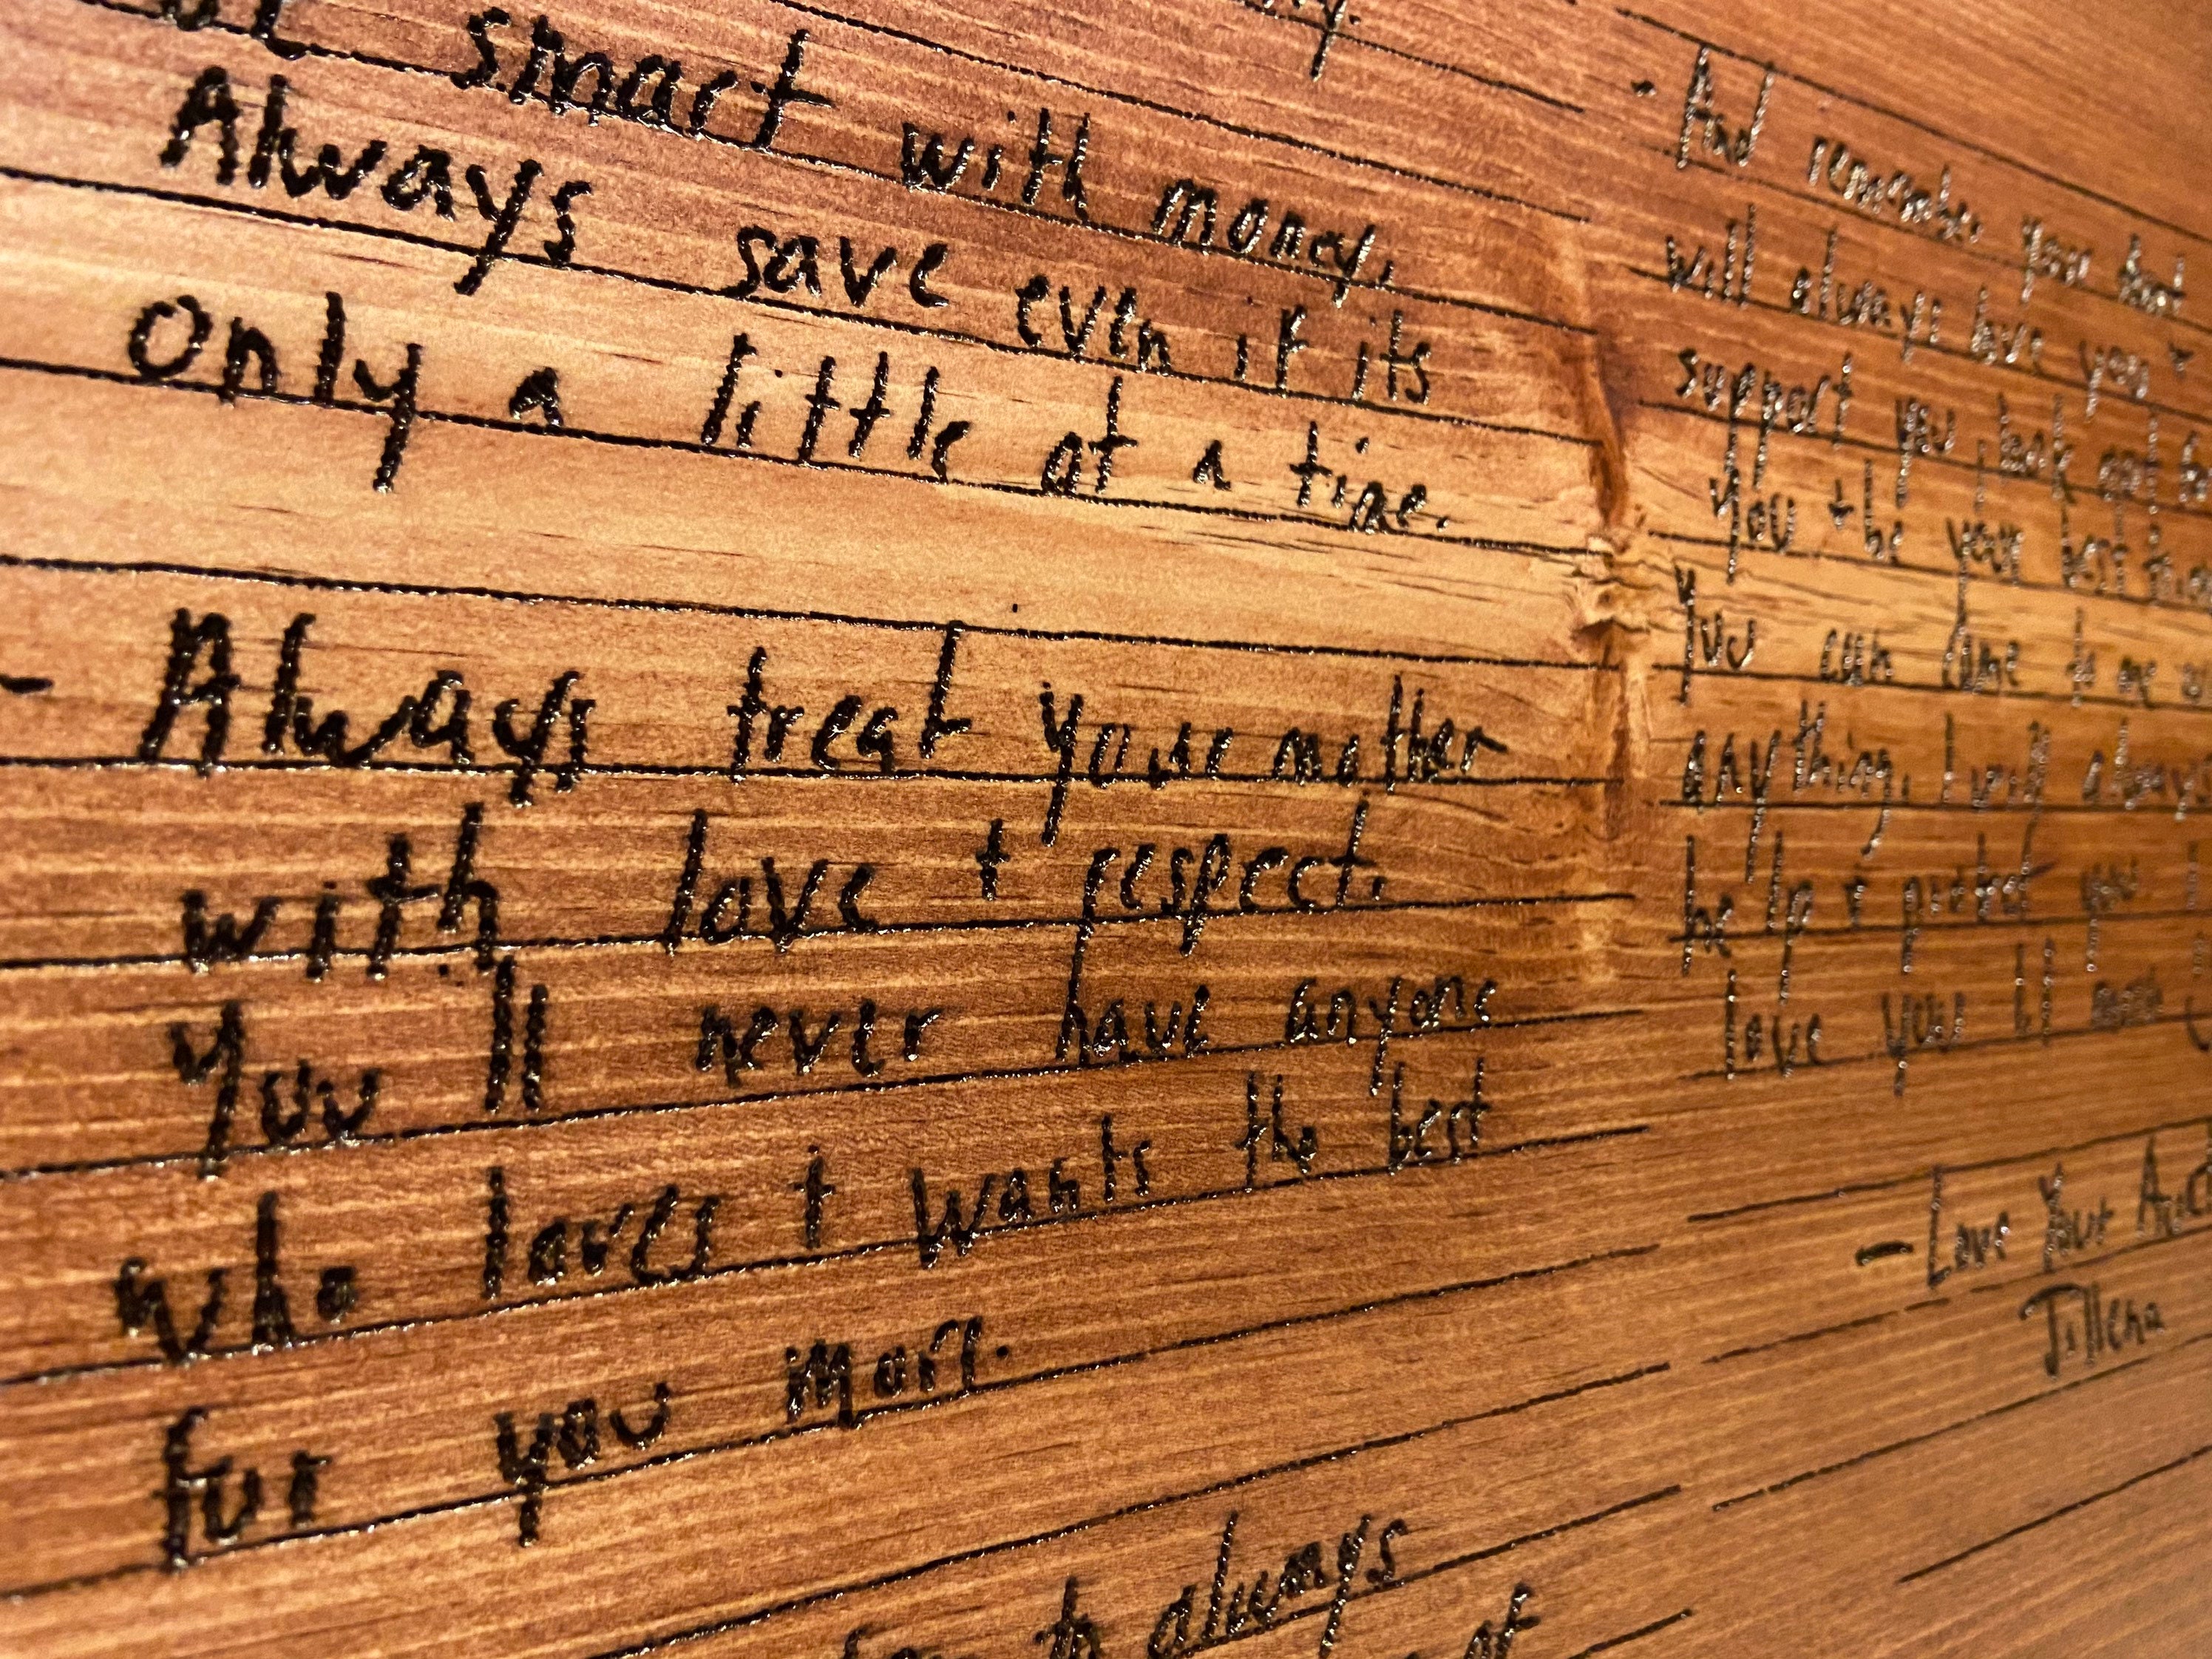 be smart with money.
Always save even if its
only a little at a time.
- Always treat your mother
with love + respect.
You'll never have anyone
who loves + wants the best
for you more.
to always
at
- And remember your
will always love you +
support you,
You + be your best
You can come to me
anything. I will always
help + protect you
love you
- Love Your
Jillena